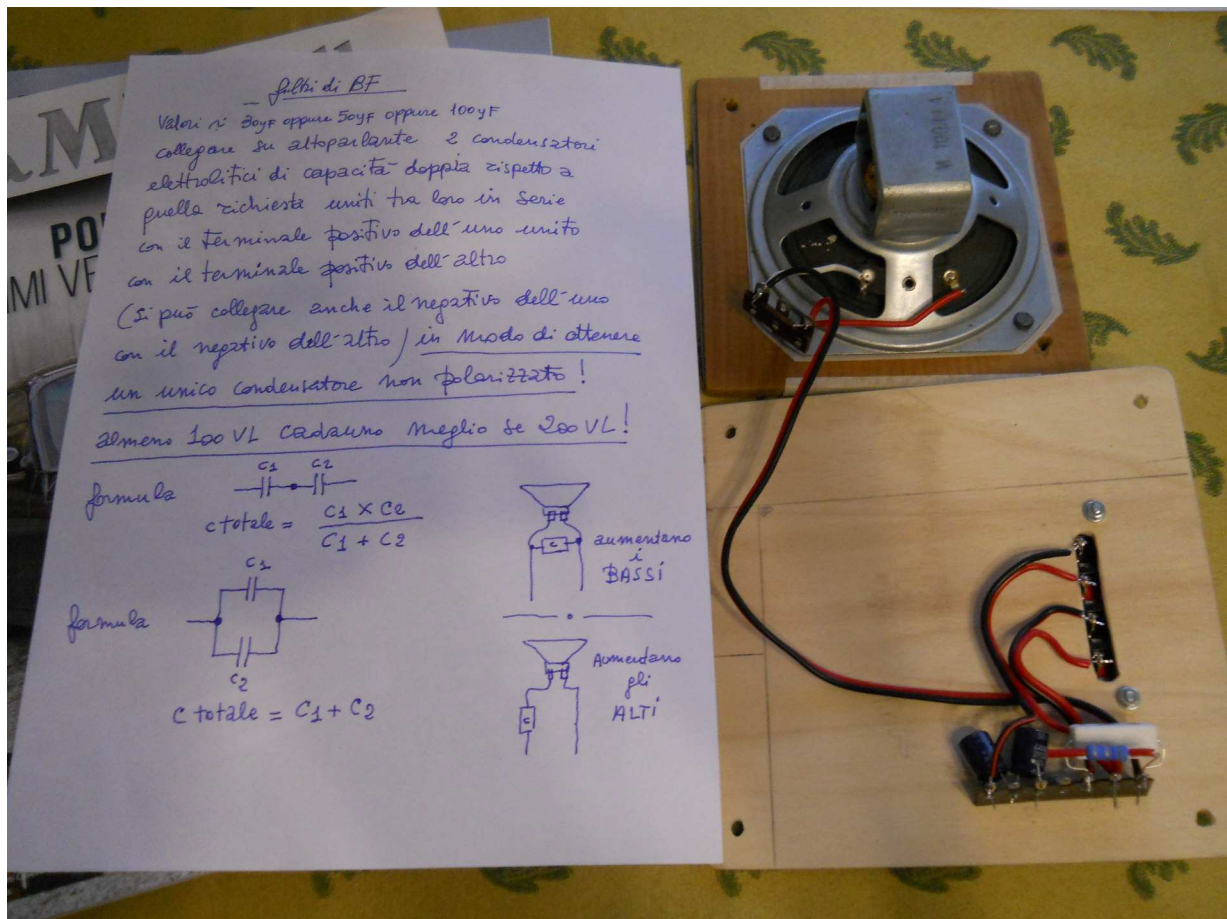 filtri di BF
Valori ~ 30µF oppure 50µF oppure 100µF
collegare su altoparlante 2 condensatori
elettrolitici di capacità doppia rispetto a
quella richiesta uniti tra loro in serie
con il terminale positivo dell'uno unito
con il terminale positivo dell'altro
(si può collegare anche il negativo dell'uno
con il negativo dell'altro) in modo di ottenere
un unico condensatore non polarizzato!
almeno 100 VL cadauno meglio se 200 VL!
C1 C2
formula
C totale = C1 x C2
C1 + C2
C
aumentano
i
BASSI
C1
formula
C2
C totale = C1 + C2
C
Aumentano
gli
ALTI
AM
PO
MI VE